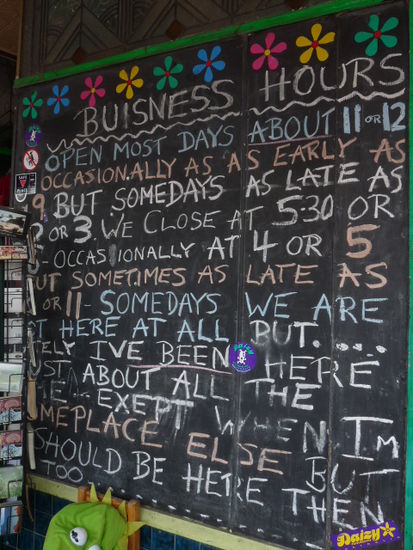 BUISNESS HOURS
OPEN MOST DAYS ABOUT 11 OR 12
OCCASIONALLY AS AS EARLY AS
9. BUT SOMEDAYS AS LATE AS
2 OR 3. WE CLOSE AT 5:30 OR
- OCCASIONALLY AT 4 OR 5
UT SOMETIMES AS LATE AS
OR 11 - SOMEDAYS WE ARE
T HERE AT ALL BUT.....
ELY I'VE BEEN HERE
ST ABOUT ALL THE
E.. EXEPT WHEN IM
MEPLACE ELSE BUT
SHOULD BE HERE THEN
TOO
Daizy
Daizy